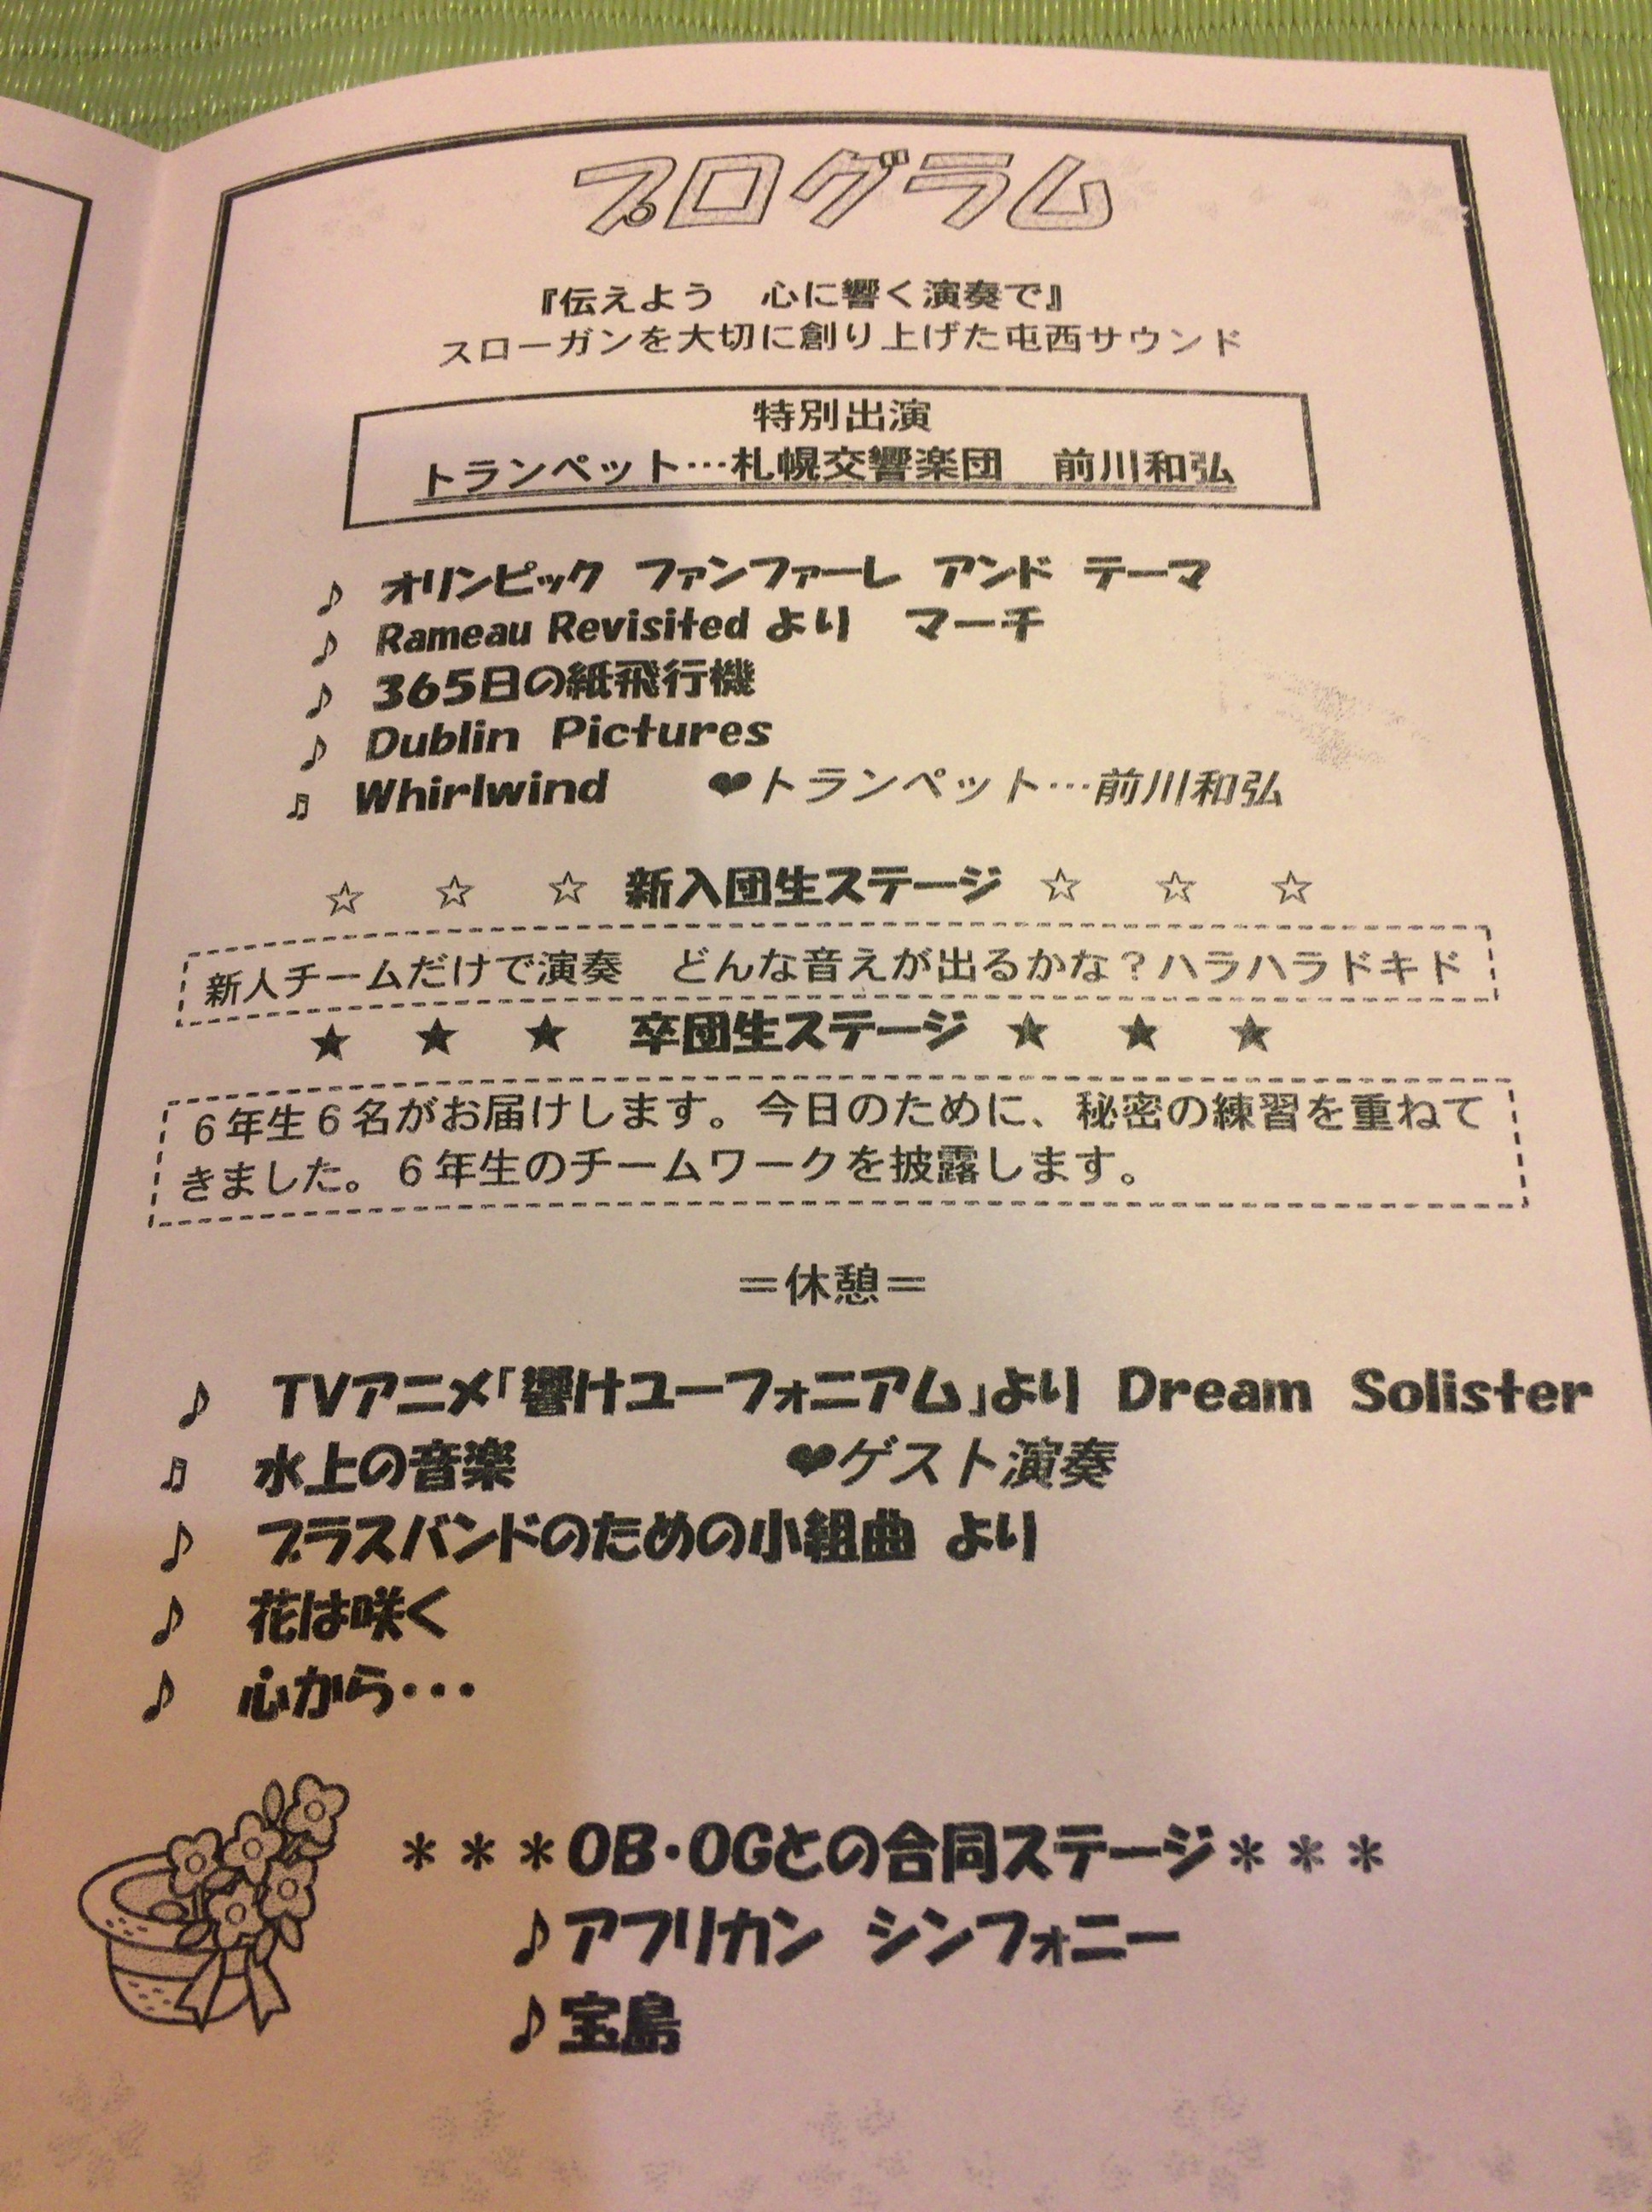 プログラム
『伝えよう　心に響く演奏で』
スローガンを大切に創り上げた屯西サウンド
特別出演
トランペット…札幌交響楽団　前川和弘
♪ オリンピック ファンファーレ アンド テーマ
♪ Rameau Revisited より マーチ
♪ 365日の紙飛行機
♪ Dublin Pictures
♬ Whirlwind ❤トランペット…前川和弘
☆ ☆ ☆ 新入団生ステージ ☆ ☆ ☆
新人チームだけで演奏　どんな音えが出るかな？ハラハラドキド
★ ★ ★ 卒団生ステージ ★ ★ ★
６年生６名がお届けします。今日のために、秘密の練習を重ねて
きました。６年生のチームワークを披露します。
＝休憩＝
♪ TVアニメ「響けユーフォニアム」より Dream Solister
♬ 水上の音楽 ❤ゲスト演奏
♪ ブラスバンドのための小組曲 より
♪ 花は咲く
♪ 心から・・・
＊＊＊OB・OGとの合同ステージ＊＊＊
♪アフリカン シンフォニー
♪宝島